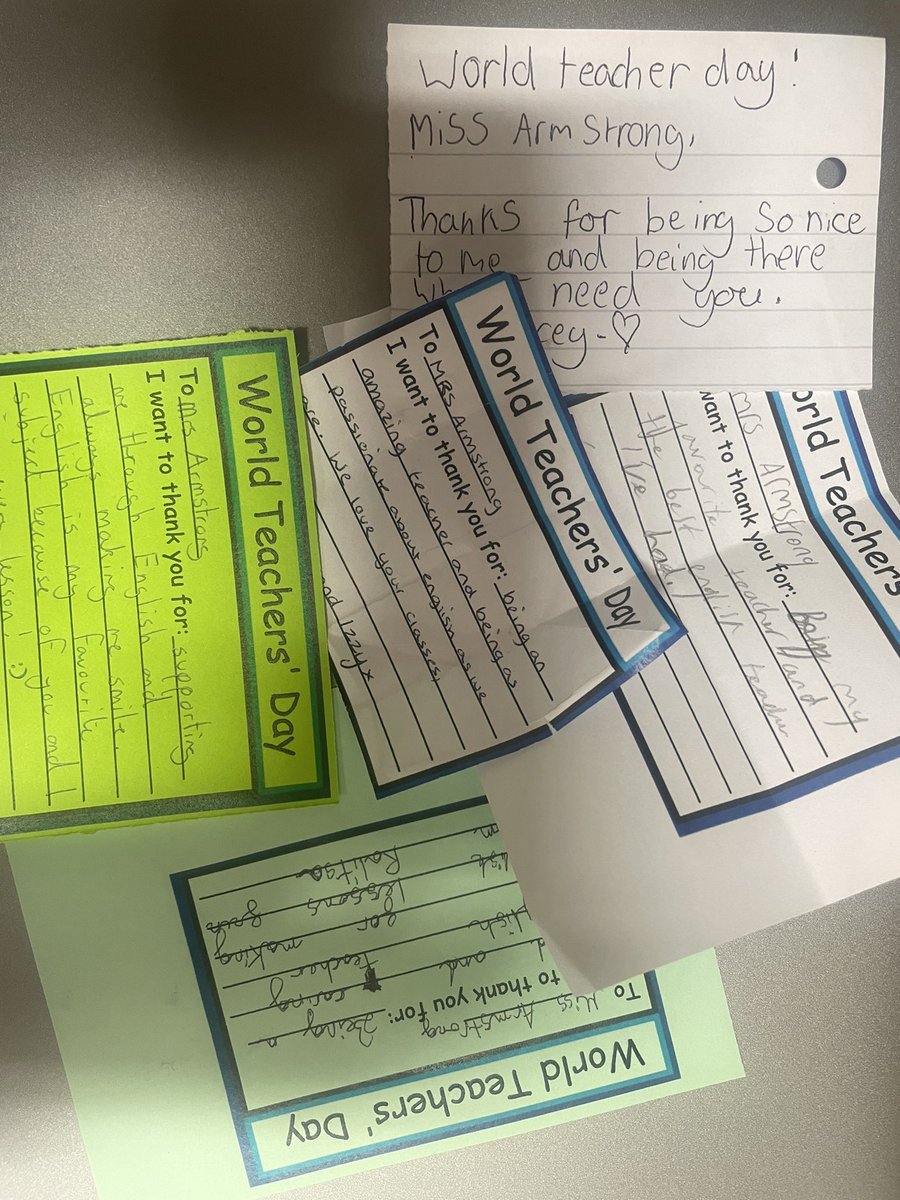 World teacher day!
Miss Armstrong,
Thanks for being so nice
to me and being there
need you.
cey-♡
World Teachers' Day
To Mrs Armstrong
I want to thank you for: supporting
me through English and
always making me smile.
English is my favourite
subject because of you and
lesson! :)
World Teachers' Day
To Miss Armstrong
I want to thank you for: being an
amazing teacher and being as
passionate about english as we
are. We love your classes,
nd Izzyx
orld Teachers
Mrs Armstrong
want to thank you for: my
favourite teacher and
the best english teacher
World Teachers' Day
To Miss Armstrong
to thank you for: Being a
caring teacher
and for making
lish lessons